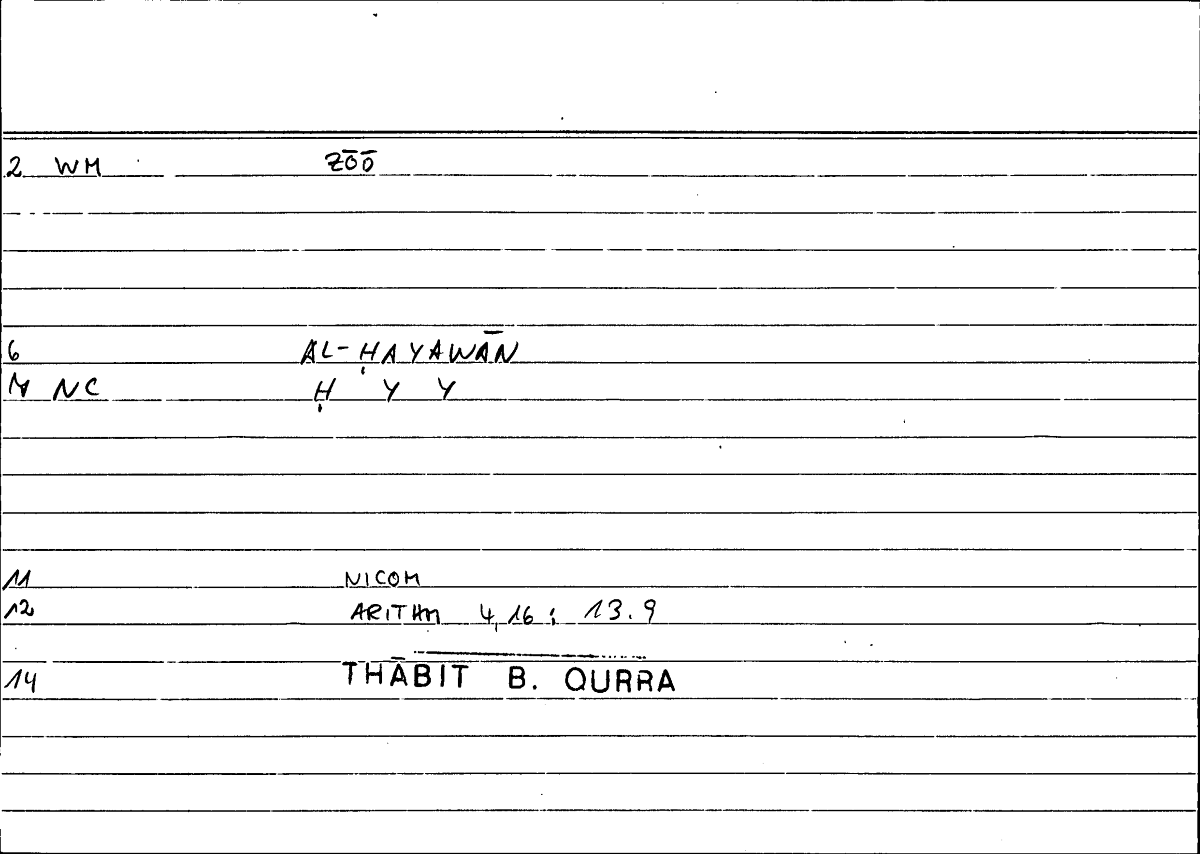 2 WM ZŌŌ
6 AL-ḤAYAWĀN
NC Ḥ Y Y
11 NICOM
12 ARITHM 4,16 ; 13.9
14 THĀBIT B. QURRA